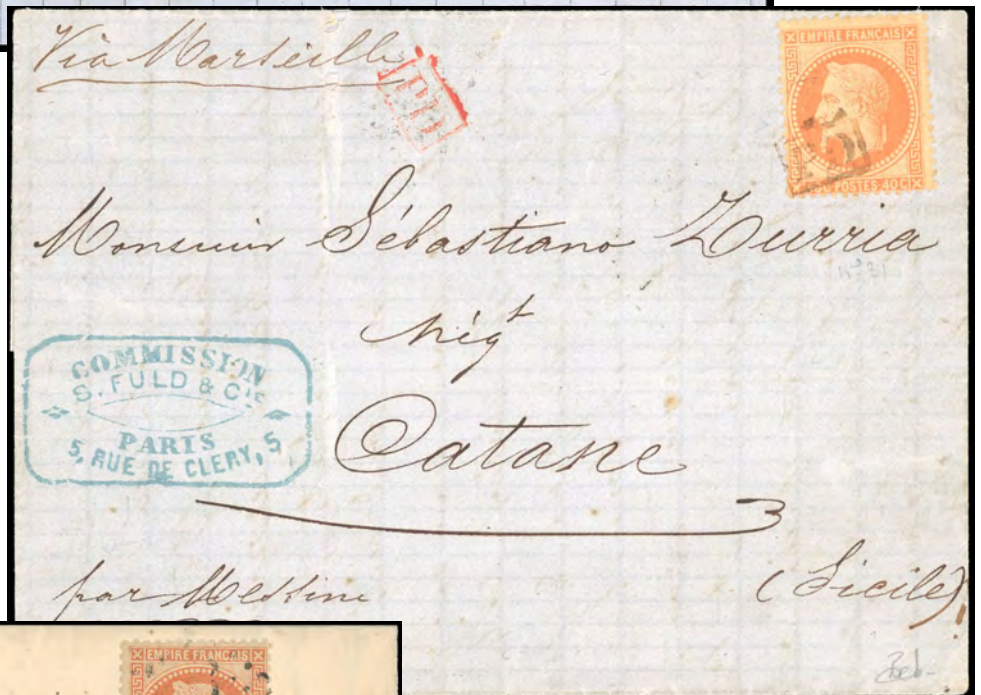 Via Marseille
PD
EMPIRE FRANÇAIS
POSTES 40C
Monsieur Sébastiano Zurria
nég^t
COMMISSION
S. FULD & C^IE
PARIS
5, RUE DE CLERY, 5
Catane
par Messine
(Sicile)
EMPIRE FRANÇAIS